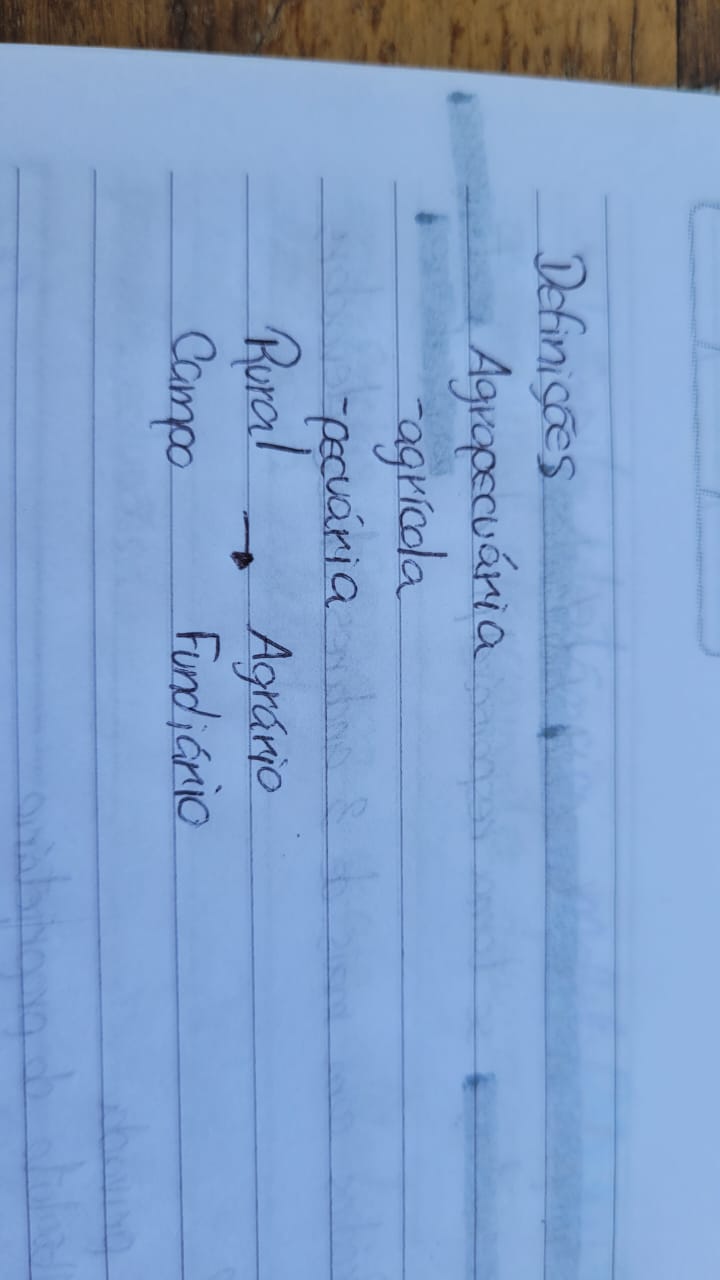 Definições
Agropecuária
-agrícola
-pecuária
Rural → Agrário
Campo Fundiário